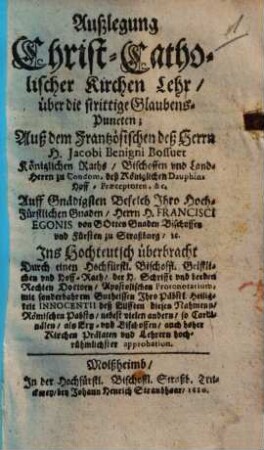 Außlegung
Christ-Catho-
lischer Kirchen Lehr /
über die strittige Glaubens-
Puncten;
Auß dem Frantzösischen deß Herrn
H. Jacobi Benigni Bossuet
Königlichen Raths / Bischoffen und Land-
Herrn zu Condom, deß Königlichen Dauphins
Hoff / Præceptoren, &c.
Auff Gnädigsten Befelch Ihro Hoch-
Fürstlichen Gnaden / Herrn H. FRANCISCI
EGONIS von GOttes Gnaden Bischoffen
und Fürsten zu Straßburg / ꝛc.
Ins Hochteutsch überbracht
Durch einen Hochfürstl. Bischöffl. Geistli-
chen und Hoff-Rath / der H. Schrifft und beeden
Rechten Doctorn / Apostolischen Protonotarium,
mit sonderbahrem Gutheissen Ihro Päbstl. Heilig-
keit INNOCENTII deß Eilfften dieses Nahmens /
Römischen Pabsts / nebest vielen andern / so Cardi-
nälen / als Ertz- und Bischoffen / auch hoher
Kirchen Prälaten und Lehrern hoch-
rühmlichster approbation.
Molßheimb /
In der Hochfürstl. Bischöffl. Straßb. Tru-
ckerey / bey Johann Henrich Straubhaar /